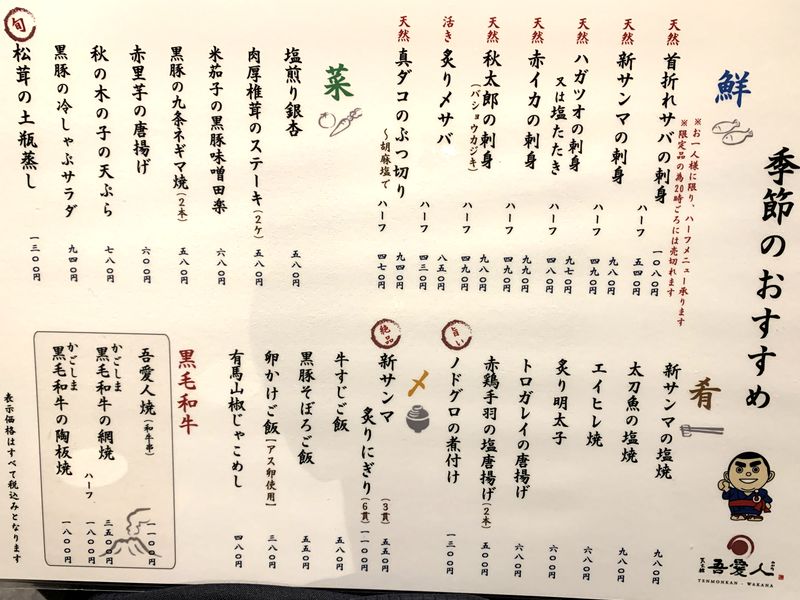 季節のおすすめ
鮮
※お一人様に限り、ハーフメニュー承ります
※限定品の為20時ごろには売切れます
天然 首折れサバの刺身 一〇八〇円
ハーフ 五四〇円
天然 新サンマの刺身 九八〇円
ハーフ 四九〇円
天然 ハガツオの刺身 九七〇円
又は塩たたき
ハーフ 四八〇円
天然 赤イカの刺身 九九〇円
ハーフ 四九〇円
天然 秋太郎の刺身 九八〇円
(バショウカジキ)
ハーフ 四九〇円
活き 炙りメサバ 八五〇円
ハーフ 四三〇円
天然 真ダコのぶつ切り 九四〇円
〜胡麻塩で
ハーフ 四七〇円
菜
塩煎り銀杏 五八〇円
肉厚椎茸のステーキ(2ケ) 五八〇円
米茄子の黒豚味噌田楽 六八〇円
黒豚の九条ネギマ焼(2本) 五八〇円
赤里芋の唐揚げ 六〇〇円
秋の木の子の天ぷら 七八〇円
黒豚の冷しゃぶサラダ 九四〇円
旬 松茸の土瓶蒸し 一三〇〇円
肴
新サンマの塩焼 九八〇円
太刀魚の塩焼 九八〇円
エイヒレ焼 六八〇円
炙り明太子 六八〇円
トロガレイの唐揚げ 六八〇円
赤鶏手羽の塩唐揚げ(2本) 五〇〇円
旨い ノドグロの煮付け 一三〇〇円
〆
絶品 新サンマ
炙りにぎり (3貫) 五五〇円
(6貫) 一一〇〇円
牛すじご飯 五八〇円
黒豚そぼろご飯 五五〇円
卵かけご飯【アス卵使用】 三八〇円
有馬山椒じゃこめし 四八〇円
黒毛和牛
吾愛人焼(和牛串) 一一〇〇円
かごしま
黒毛和牛の網焼 三五〇〇円
ハーフ 一八〇〇円
かごしま
黒毛和牛の陶板焼 一八〇〇円
表示価格はすべて税込みとなります
天文館 吾愛人 わかな
TENMONKAN - WAKANA